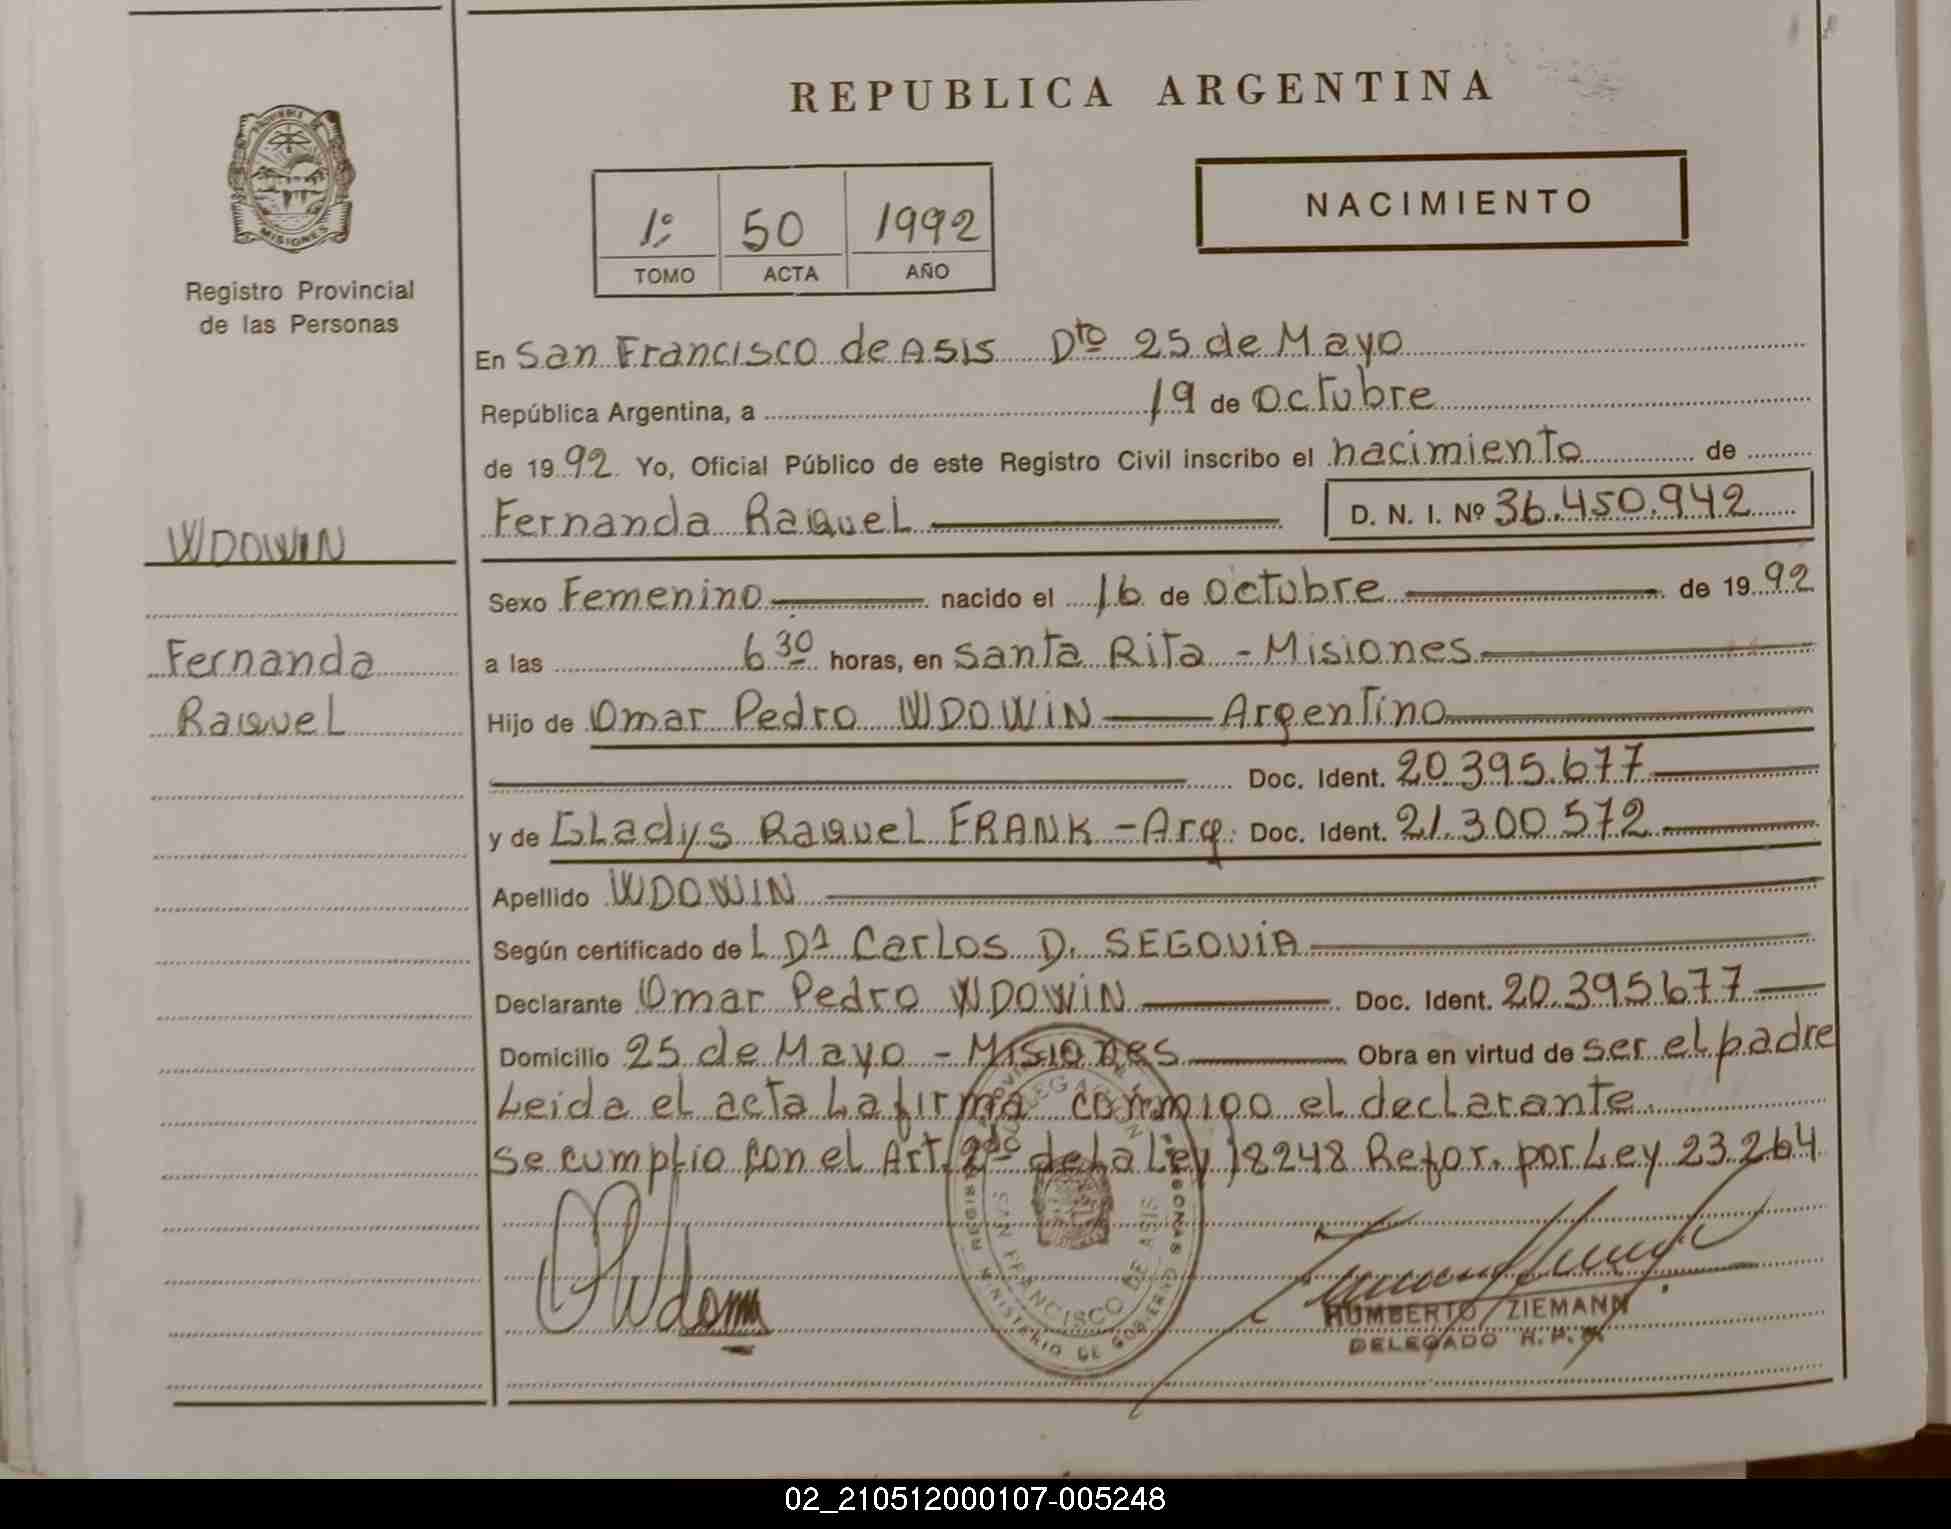 REPUBLICA ARGENTINA
NACIMIENTO
1º 50 1992
TOMO ACTA AÑO
PROVINCIA DE
MISIONES
Registro Provincial
de las Personas
En San Francisco de Asis Dto 25 de Mayo
República Argentina, a 19 de octubre
de 1992 Yo, Oficial Público de este Registro Civil inscribo el nacimiento de
Fernanda Raquel D. N. I. Nº 36.450.942
WDOWIN
Sexo Femenino nacido el 16 de octubre de 1992
Fernanda
a las 6 30 horas, en Santa Rita - Misiones
Raquel
Hijo de Omar Pedro WDOWIN Argentino
Doc. Ident. 20.395.677
y de Gladys Raquel FRANK - Arg. Doc. Ident. 21.300.572
Apellido WDOWIN
Según certificado del Carlos D. SEGOVIA
Declarante Omar Pedro WDOWIN Doc. Ident. 20.395677
Domicilio 25 de Mayo - Misiones Obra en virtud de ser el padre
Leida el acta la firma conmigo el declarante
se cumplio con el Art. 2do de la Ley 18248 Refor. por Ley 23.264
DELEGACION
SAN FRANCISCO DE ASIS
MINISTERIO DE GOBIERNO
HUMBERTO ZIEMANN
DELEGADO R. P. P.
02_210512000107-005248